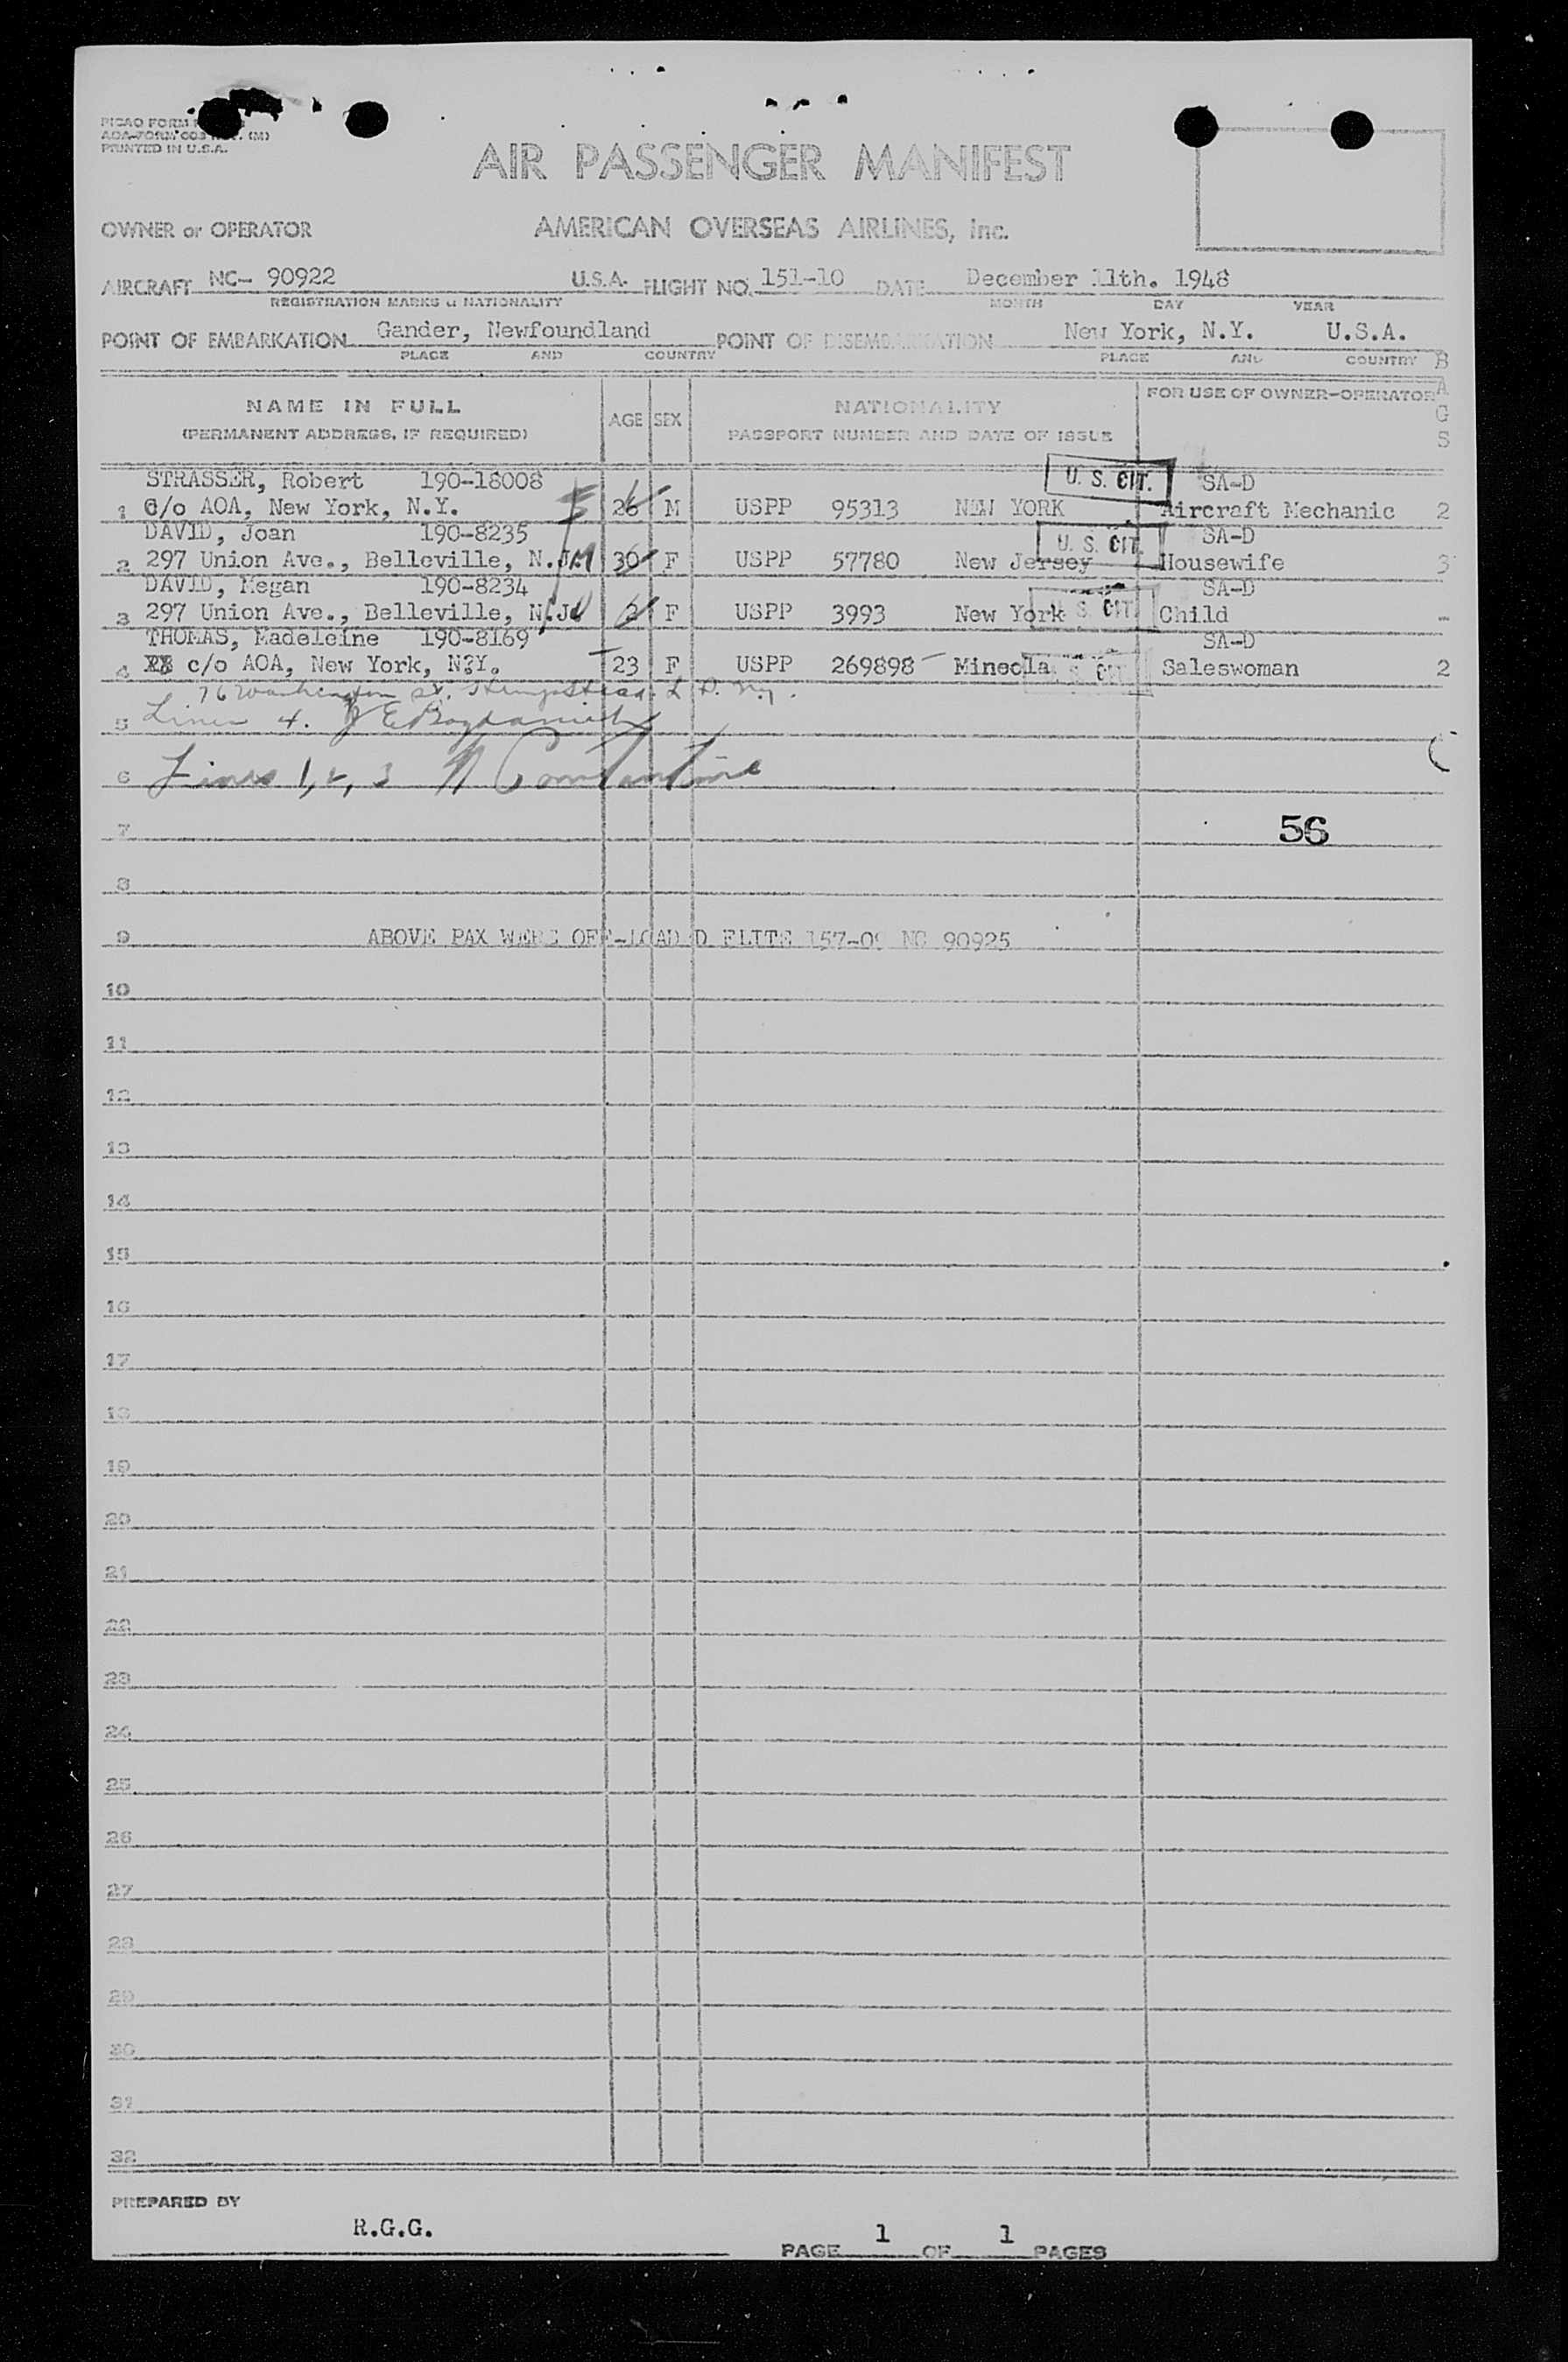 PICAO FORM
AOA-FORM 003 (M)
PRINTED IN U.S.A.
AIR PASSENGER MANIFEST
OWNER or OPERATOR AMERICAN OVERSEAS AIRLINES, Inc.
AIRCRAFT NC- 90922 U.S.A. FLIGHT NO. 151-10 DATE December 11th. 1948
REGISTRATION MARKS & NATIONALITY MONTH DAY YEAR
POINT OF EMBARKATION Gander, Newfoundland POINT OF DISEMBARKATION New York, N.Y. U.S.A.
PLACE AND COUNTRY PLACE AND COUNTRY
BAGS
NAME IN FULL AGE SEX NATIONALITY FOR USE OF OWNER-OPERATOR
(PERMANENT ADDRESS, IF REQUIRED) PASSPORT NUMBER AND DATE OF ISSUE
STRASSER, Robert 190-18008 U. S. CIT. SA-D
1 C/o AOA, New York, N.Y. 26 M USPP 95313 NEW YORK Aircraft Mechanic 2
DAVID, Joan 190-8235 U. S. CIT. SA-D
2 297 Union Ave., Belleville, N.J. 30 F USPP 57780 New Jersey Housewife 3
DAVID, Megan 190-8234 U. S. CIT. SA-D
3 297 Union Ave., Belleville, N.J. 2 F USPP 3993 New York Child -
THOMAS, Madeleine 190-8169 SA-D
4 c/o AOA, New York, N.Y. 23 F USPP 269898 Mineola U. S. CIT. Saleswoman 2
76 Washington St. Hempstead. L. I. N.y.
5 Lines 4.
6 Lines 1, 2, 3 Constantine
7 56
8
9 ABOVE PAX WERE OFF-LOADED FLITE 157-09 NC 90925
10
11
12
13
14
15
16
17
18
19
20
21
22
23
24
25
26
27
28
29
30
31
32
PREPARED BY
R.G.G.
PAGE 1 OF 1 PAGES